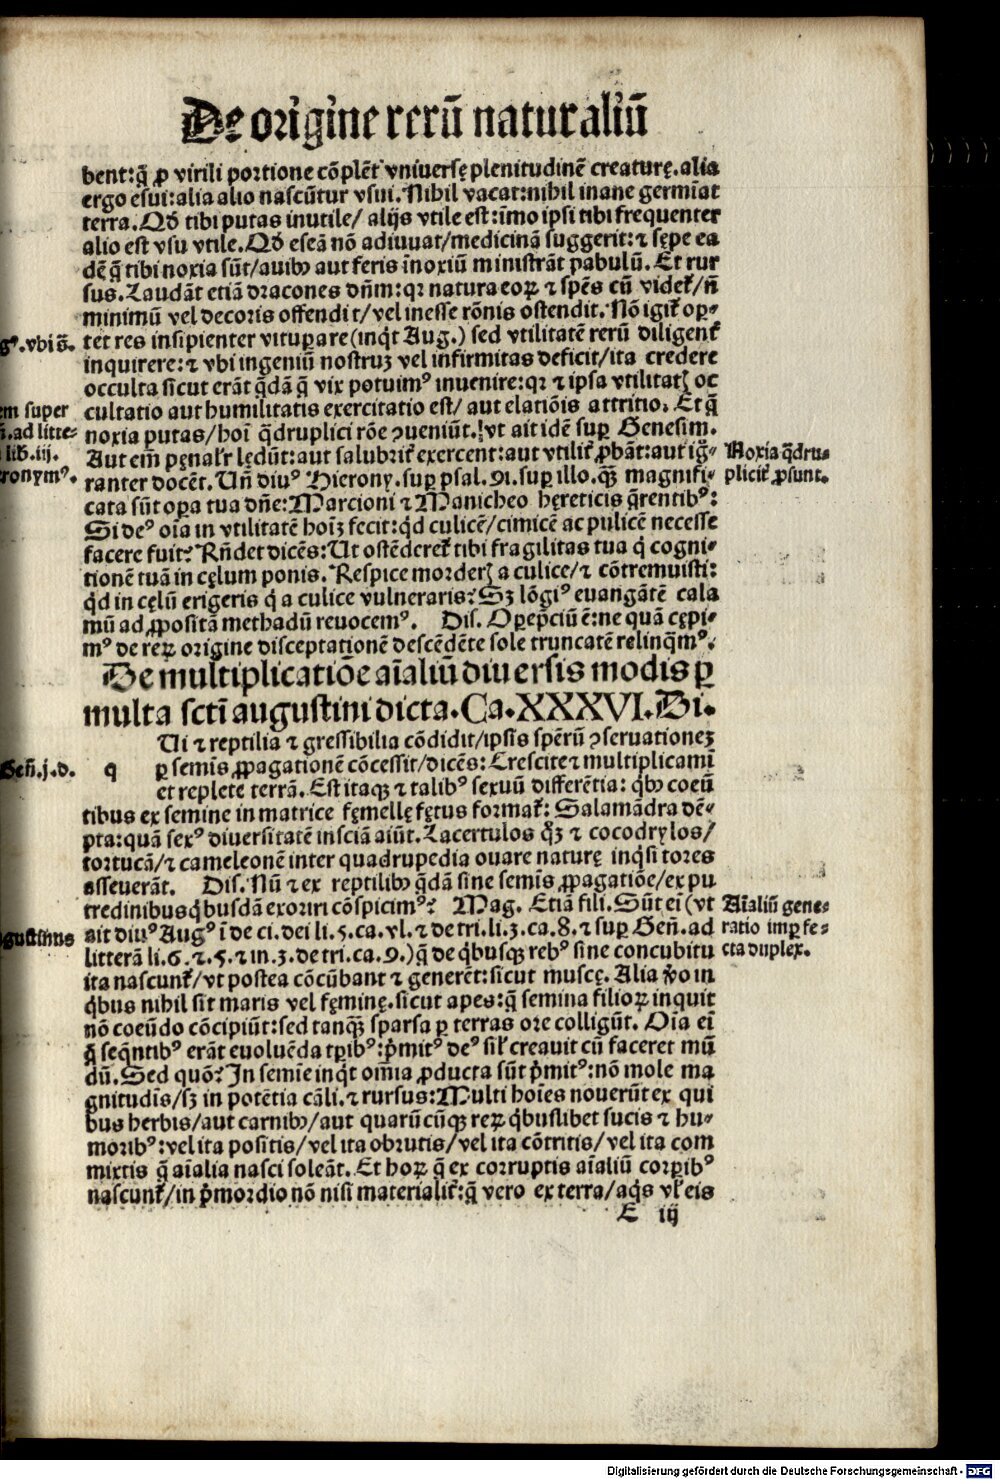 De origine rerū naturaliū
bent:q̄ ꝓ virili portione cōplēt vniuersę plenitudinē creaturę. alia
ergo esui: alia alio nascūtur vsui. Nihil vacat: nihil inane germīat
terra. Qd̄ tibi putas inutile/ alijs vtile est: īmo ipsi tibi frequenter
alio est vsu vtile. Qd̄ escā nō adiuuat/ medicinā suggerit: ⁊ sępe ea
dē q̄ tibi noxia sūt/ auibꝫ aut feris īnoxiū ministrāt pabulū. Et rur
sus. Laudāt etiā dracones dn̄m: qꝛ natura eoꝝ ⁊ sp̄es cū videt̄/ n̄
minimū vel decoris offendit/ vel inesse rōnis ostendit. Nō igit̄ opꝛ-
tet res insipienter vituꝑare (inq̇t Aug.) sed vtilitatē rerū diligent̄
gꝰ. vbi s̄.
inquirere: ⁊ vbi ingeniū nostruꝫ vel infirmitas deficit/ ita credere
occulta sicut erāt q̄dā q̄ vix potuimꝰ inuenire: qꝛ ⁊ ipsa vtilitatꝭ oc
em super
cultatio aut humilitatis exercitatio est/ aut elatiōis attritio. Et q̄
n̄. ad litte-
noxia putas/ hoī q̄druplici rōe ꝯueniūt. vt ait idē suꝑ Genesim.
lib. iij.
Aut em̄ pęnalr̄ lędūt: aut salubrit̄ exercent: aut vtilit̄ ꝓbāt: aut ig̅-
Noxia q̄dru-
ronymꝰ.
ranter docēt. Un̄ diuꝰ Hierony. suꝑ psal. 91. suꝑ illo. qꝫ̄ magnifi-
plicit̄ ꝓsunt.
cata sūt oꝑa tua dn̄e: Marcioni ⁊ Manicheo hęreticis q̄rentibꝰ:
Si deꝰ oīa in vtilitatē hoīꝫ fecit: qd̄ culicē/ cimicē ac pulicē necesse
facere fuit? Rn̄det dicēs: Ut ostēderet̄ tibi fragilitas tua q̇ cogni-
tionē tuā in cęlum ponis. Respice morderꝭ a culice/ ⁊ cōtremuisti:
qd̄ in cęlū erigeris q̇ a culice vulneraris? Sꝫ lōgiꝰ euangātē cala
mū ad ꝓpositā methadū reuocemꝰ. Dis. Oꝑepciū ē: ne quā cępi-
mꝰ de reꝝ origine disceptationē descēdēte sole truncatē relinqm̄ꝰ.
De multiplicatiōe aīaliū diuersis modis ꝑ
multa sctī augustini dicta. Ca. XXXVI. Di.
Ui ⁊ reptilia ⁊ gressibilia cōdidit/ ipsīs sp̄erū ꝯseruationeꝫ
Gen̄. j. d.
q
ꝑ semīs ꝓpagationē cōcessit/ dicēs: Crescite ⁊ multiplicamī
et replete terrā. Est itaqꝫ ⁊ talibꝰ sexuū differētia: qb̄ꝫ coeū
tibus ex semine in matrice fęmellę fętus format̄: Salamādra dē-
pta: quā sexꝰ diuersitatē insciā aiūt. Lacertulos qꝫ̊ ⁊ cocodrylos/
tortucā/ ⁊ cameleonē inter quadrupedia ouare naturę inq̇sitores
asseuerāt. Dis. Nū ⁊ ex reptilibꝫ q̄dā sine semīs ꝓpagatiōe/ ex pu
tredinibus q̇busdā exoriri cōspicimꝰ? Mag. Etiā fili. Sūt eī (vt
Aīaliū gene-
ait diuꝰ Augꝰ ī de ci. dei li. 5. ca. vl. ⁊ de tri. li. 3. ca. 8. ⁊ suꝑ Gen̄. ad
ratio imꝑfe-
gustinus
litterā li. 6. ⁊. 5. ⁊ in. 3. de tri. ca. 9.) q̄ de q̇busqꝫ rebꝰ sine concubitu
cta duplex.
ita nascunt̄/ vt postea cōcūbant ⁊ generēt: sicut muscę. Alia v̊o in
q̇bus nihil sit maris vel fęminę. sicut apes: q̄ semina filioꝝ inquit
nō coeūdo cōcipiūt: sed tanqꝫ̄ sparsa ꝑ terras ore colligūt. Oīa eī
q̄ seq̄ntibꝰ erāt euoluēda tꝑibꝰ: p̄mitꝰ deꝰ sil̄ creauit cū faceret mū
dū. Sed quō? In semīe inq̇t omīa ꝓducta sūt p̄mitꝰ: nō mole ma
gnitudīs/ sꝫ in potētia cāli. ⁊ rursus: Multi hoīes nouerūt ex qui
bus herbis/ aut carnibꝫ/ aut quarūcūqꝫ reꝝ q̇buslibet sucis ⁊ hu-
moribꝰ: vel ita positis/ vel ita obrutis/ vel ita cōtritis/ vel ita com
mixtis q̄ aīalia nasci soleāt. Et hoꝝ q̄ ex corruptis aīaliū corꝑibꝰ
nascunt̄/ in p̄mordio nō nisi materialit̄: q̄ vero ex terra/ aq̇s vl̄ eis
E iij
Digitalisierung gefördert durch die Deutsche Forschungsgemeinschaft - DFG